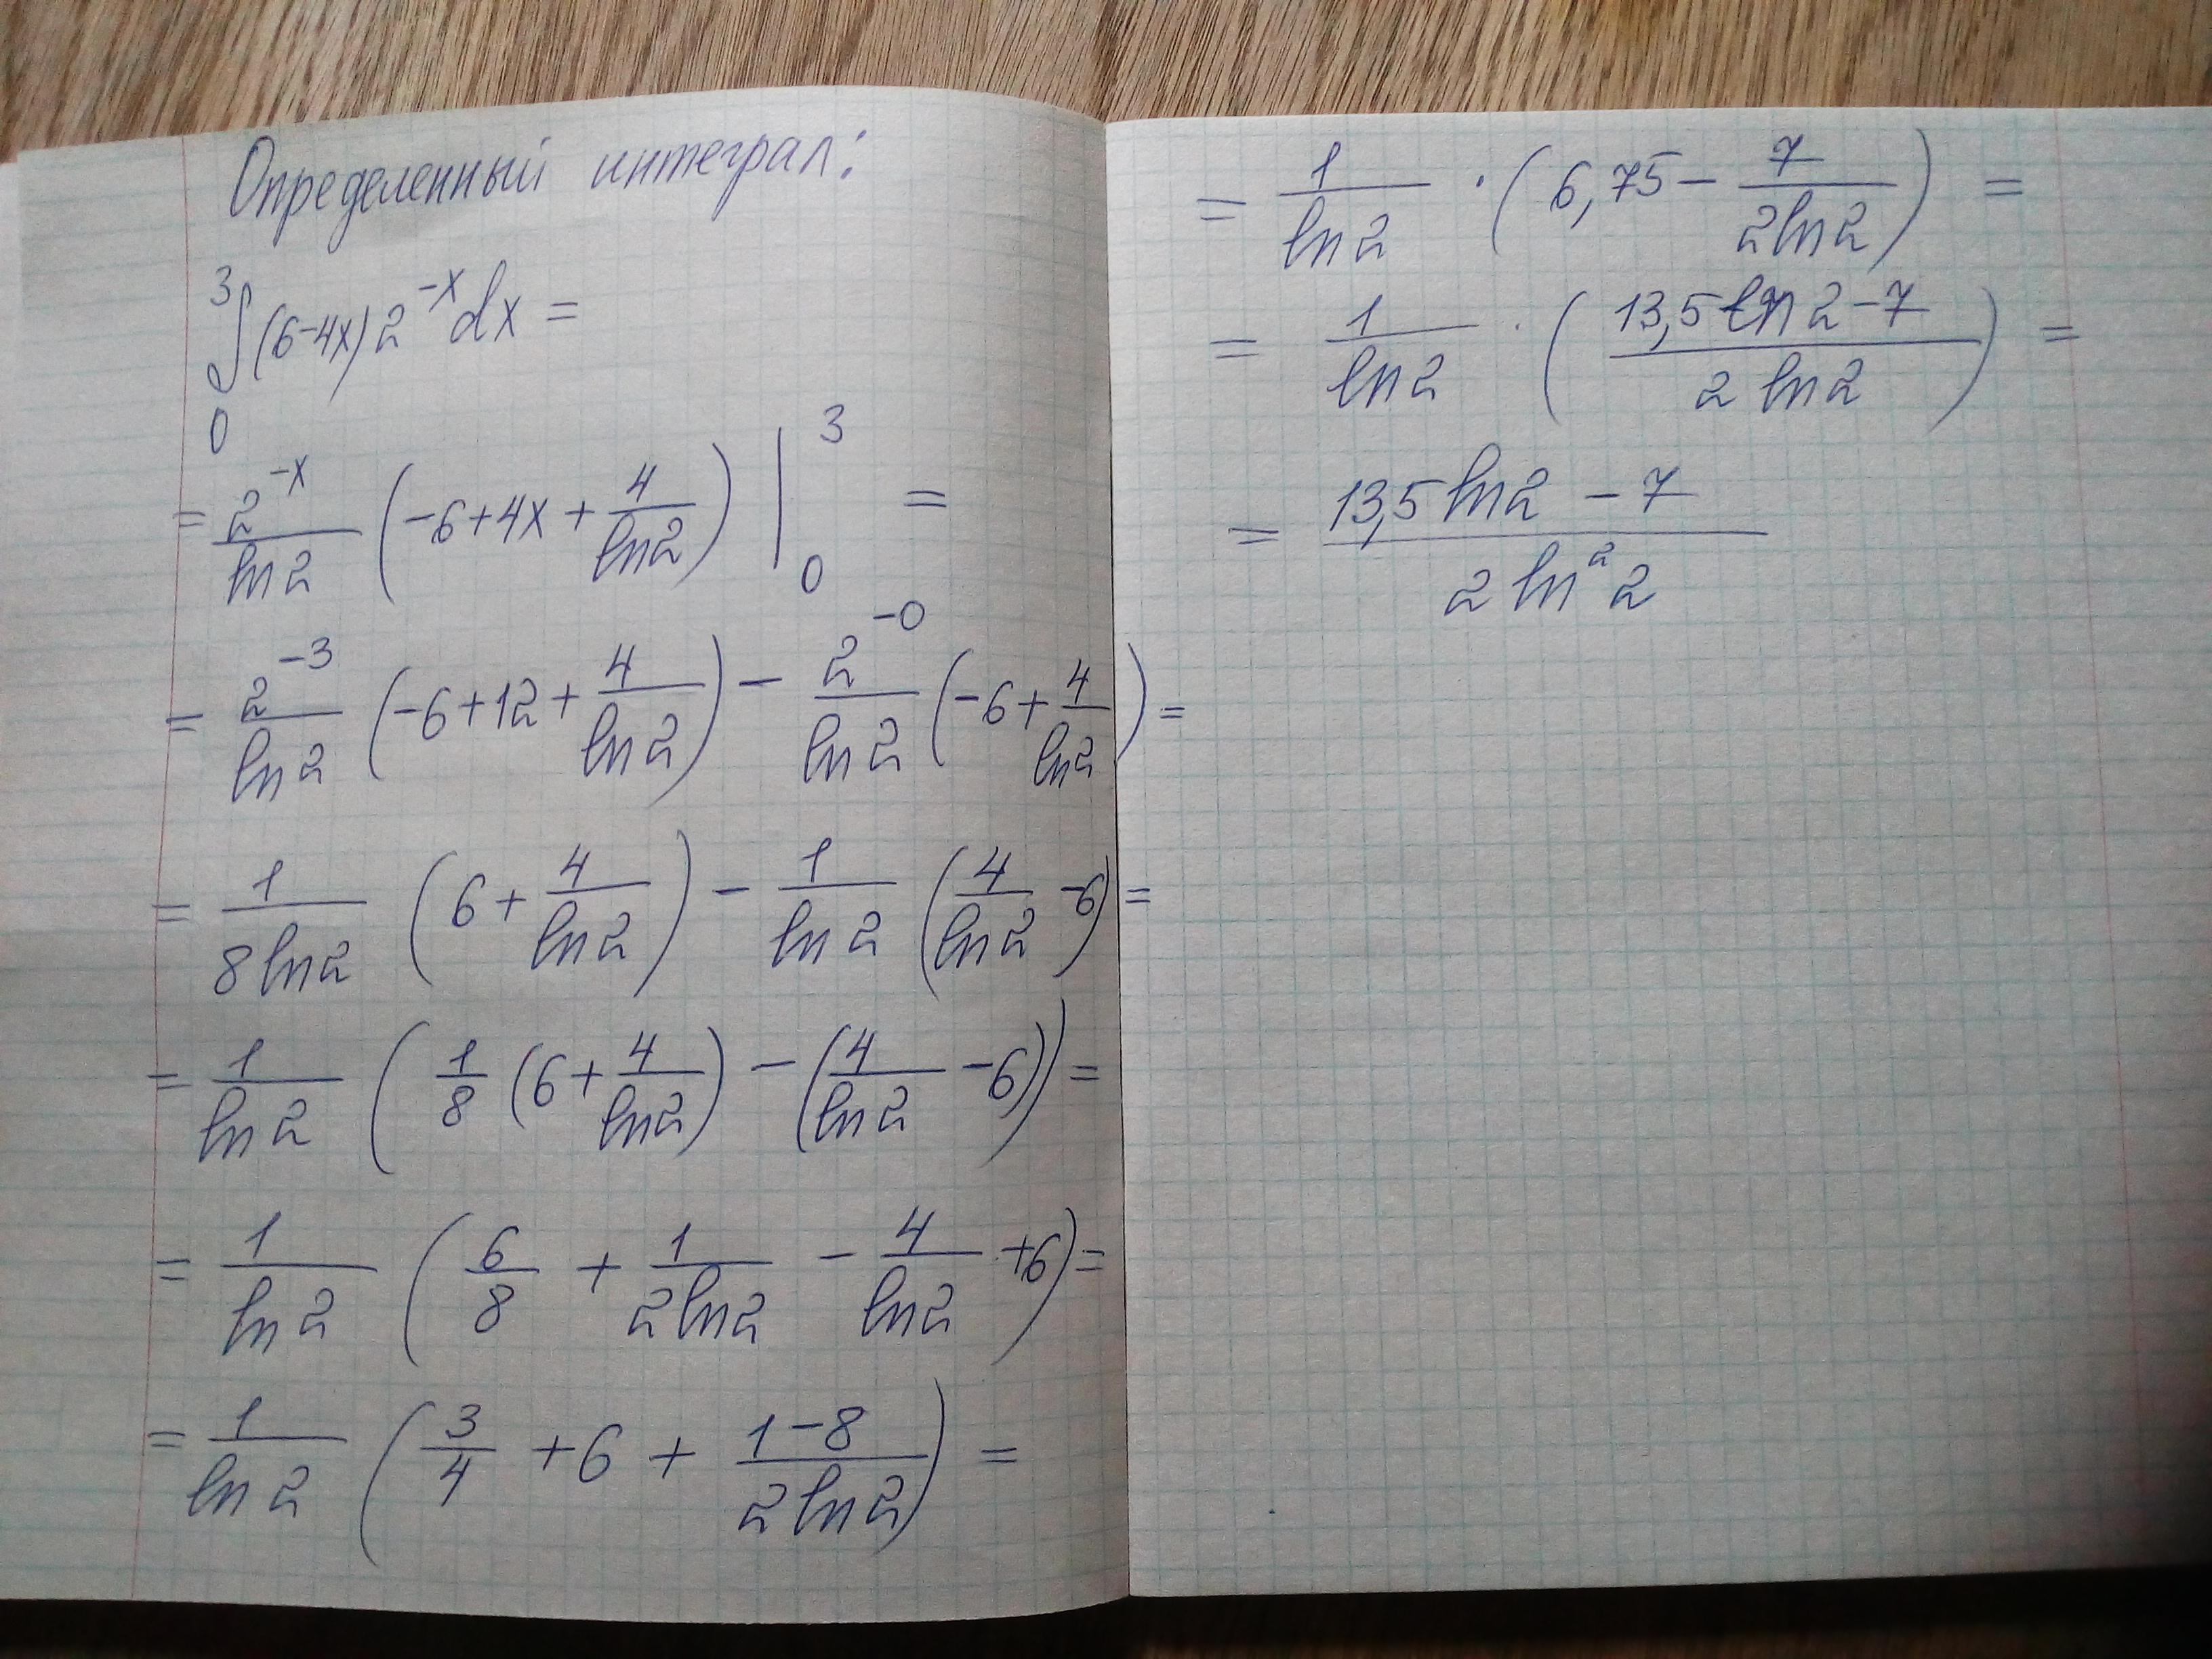 Определенный интеграл:
3
∫(6-4x)2^{-x}dx =
0
= \frac{2^{-x}}{ln2} (-6+4x+\frac{4}{ln2}) |_{0}^{3} =
= \frac{2^{-3}}{ln2} (-6+12+\frac{4}{ln2}) - \frac{2^{-0}}{ln2} (-6+\frac{4}{ln2}) =
= \frac{1}{8ln2} (6+\frac{4}{ln2}) - \frac{1}{ln2} (\frac{4}{ln2} -6) =
= \frac{1}{ln2} (\frac{1}{8} (6+\frac{4}{ln2}) - (\frac{4}{ln2} -6)) =
= \frac{1}{ln2} (\frac{6}{8} + \frac{1}{2ln2} - \frac{4}{ln2} +6) =
= \frac{1}{ln2} (\frac{3}{4} +6 + \frac{1-8}{2ln2}) =
= \frac{1}{ln2} · (6,75 - \frac{7}{2ln2}) =
= \frac{1}{ln2} · (\frac{13,5 ln2-7}{2 ln2}) =
= \frac{13,5 ln2 - 7}{2 ln^{2} 2}